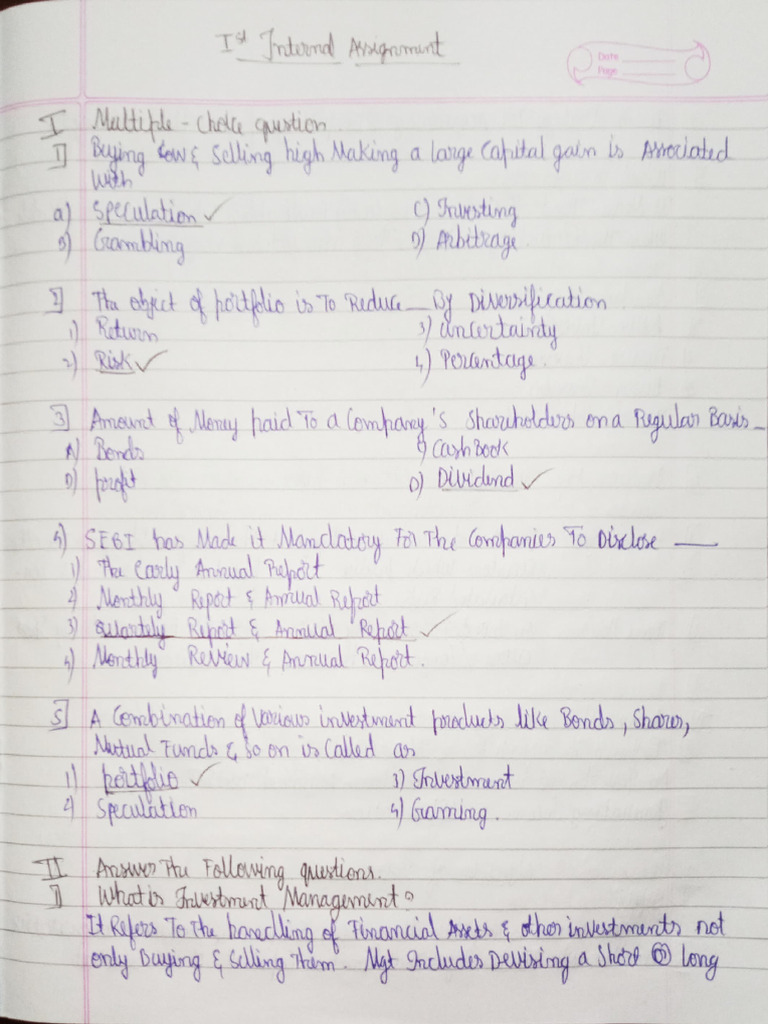 Ist Internal Assignment
Date
Page
I Multiple - Choice question
1] Buying Low & Selling high Making a large Capital gain is Associated
With
a) Speculation ✓ C) Investing
B) Grambling D) Arbitrage
2] The object of portfolio is To Reduce __ By Diversification
1) Return 3) Uncertainty
2) Risk ✓ 4) Percentage.
3] Amount of Money paid To a Company's Shareholders on a Regular Basis _
A) Bonds Cash Book
profit D) Dividend ✓
4) SEBI has Made it Mandatory For The Companies To Disclose __
1) The Early Annual Report
2) Monthly Report & Annual Report
3) Quartely Report & Annual Report ✓
4) Monthly Review & Annual Report.
5] A Combination of Various investment products like Bonds, Shares,
Mutual Funds & So on is Called as
1) portfolio ✓ 3) Investment
2) Speculation 4) Graming.
II Answer The Following questions.
1] What is Investment Management?
It Refers To The handling of Financial Assets & other investments not
only Buying & Selling Them. Mgt Includes Devising a Short long